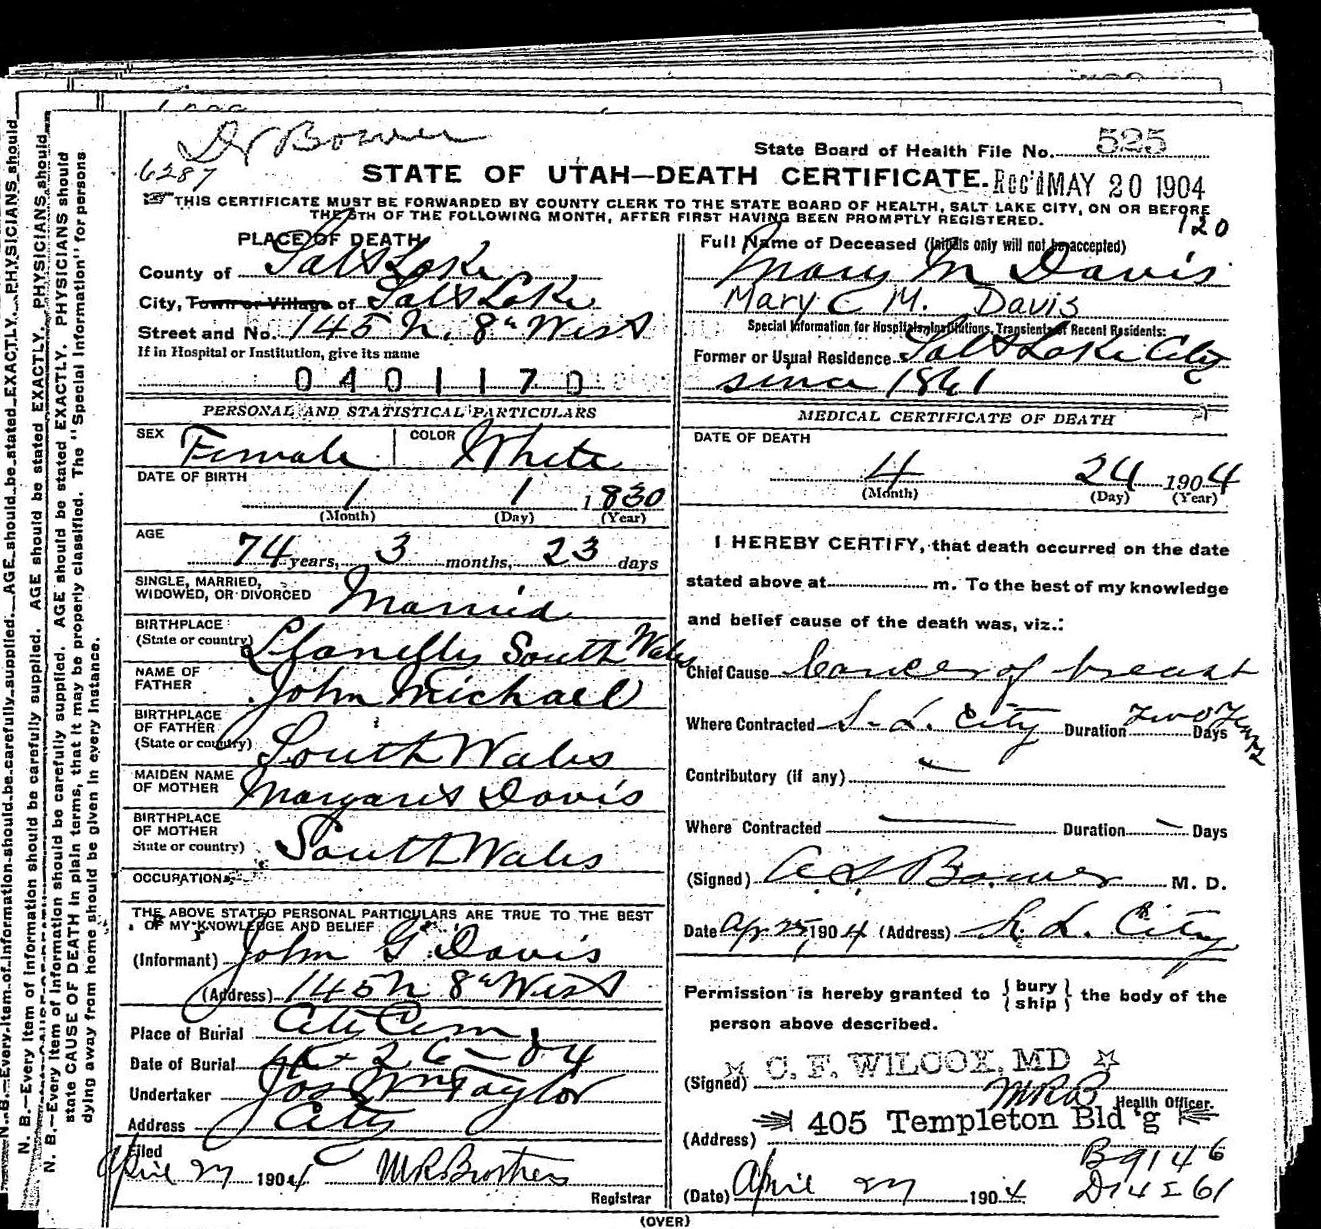 Dr Bower
6287
State Board of Health File No. 525
STATE OF UTAH—DEATH CERTIFICATE. Rec'd MAY 20 1904
THIS CERTIFICATE MUST BE FORWARDED BY COUNTY CLERK TO THE STATE BOARD OF HEALTH, SALT LAKE CITY, ON OR BEFORE
THE 5TH OF THE FOLLOWING MONTH, AFTER FIRST HAVING BEEN PROMPTLY REGISTERED.
120
PLACE OF DEATH
County of Salt Lake
City, Town or Village of Salt Lake
Street and No. 145 N. 8th West
If in Hospital or Institution, give its name
0401170
PERSONAL AND STATISTICAL PARTICULARS
SEX Female COLOR White
DATE OF BIRTH
1 1 1830
(Month) (Day) (Year)
AGE
74 years, 3 months, 23 days
SINGLE, MARRIED,
WIDOWED, OR DIVORCED Married
BIRTHPLACE
(State or country) Llanelly South Wales
NAME OF
FATHER John Michael
BIRTHPLACE
OF FATHER
(State or country) South Wales
MAIDEN NAME
OF MOTHER Margaret Davis
BIRTHPLACE
OF MOTHER
State or country) South Wales
OCCUPATION
THE ABOVE STATED PERSONAL PARTICULARS ARE TRUE TO THE BEST
OF MY KNOWLEDGE AND BELIEF
(Informant) John G Davis
(Address) 145 N 8th West
Place of Burial City Cem.
Date of Burial 4-26-04
Undertaker Jos Wm Taylor
Address City
Filed
April 27 1904 M R Brothers
Registrar
Full Name of Deceased (Initials only will not be accepted)
Mary M Davis
Mary C M. Davis
Special Information for Hospitals, Institutions, Transients or Recent Residents:
Former or Usual Residence Salt Lake City
since 1861
MEDICAL CERTIFICATE OF DEATH
DATE OF DEATH
4 24 1904
(Month) (Day) (Year)
I HEREBY CERTIFY, that death occurred on the date
stated above at m. To the best of my knowledge
and belief cause of the death was, viz.:
Chief Cause Cancer of breast
Where Contracted S. L. City Duration Two Years Days
Contributory (if any)
Where Contracted Duration Days
(Signed) Bower M. D.
Date Apr 25, 1904 (Address) S. L. City
Permission is hereby granted to { bury
ship } the body of the
person above described.
C. F. WILCOX, MD
(Signed) MRB Health Officer.
405 Templeton Bld'g
(Address)
B9146
(Date) April 27 1904
(OVER)
N. B.—Every item of information should be carefully supplied. AGE should be stated EXACTLY. PHYSICIANS should
N. B.—Every item of information should be carefully supplied. AGE should be stated EXACTLY. PHYSICIANS should
N. B.—Every item of information should be carefully supplied. AGE should be stated EXACTLY. PHYSICIANS should
state CAUSE OF DEATH in plain terms, that it may be properly classified. The "Special Information" for persons
dying away from home should be given in every instance.